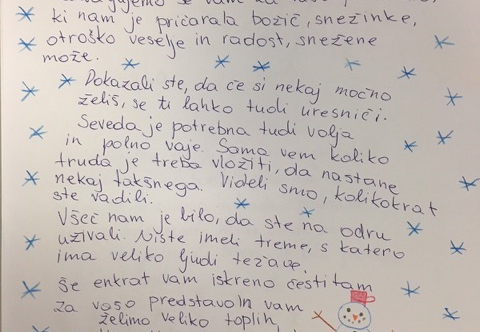 se vam za
ki nam je pričarala božič, snežinke,
otroško veselje in radost, snežene
može.
Dokazali ste, da če si nekaj močno
želiš, se ti lahko tudi uresniči.
Seveda je potrebna tudi volja
in polno vaje. Sama vem koliko
truda je treba vložiti, da nastane
nekaj takšnega. Videli smo, kolikokrat
ste vadili.
Všeč nam je bilo, da ste na odru
uživali. Niste imeli treme, s katero
ima veliko ljudi težave.
Še enkrat vam iskreno čestitam
za vašo predstavo in vam
želimo veliko toplih,